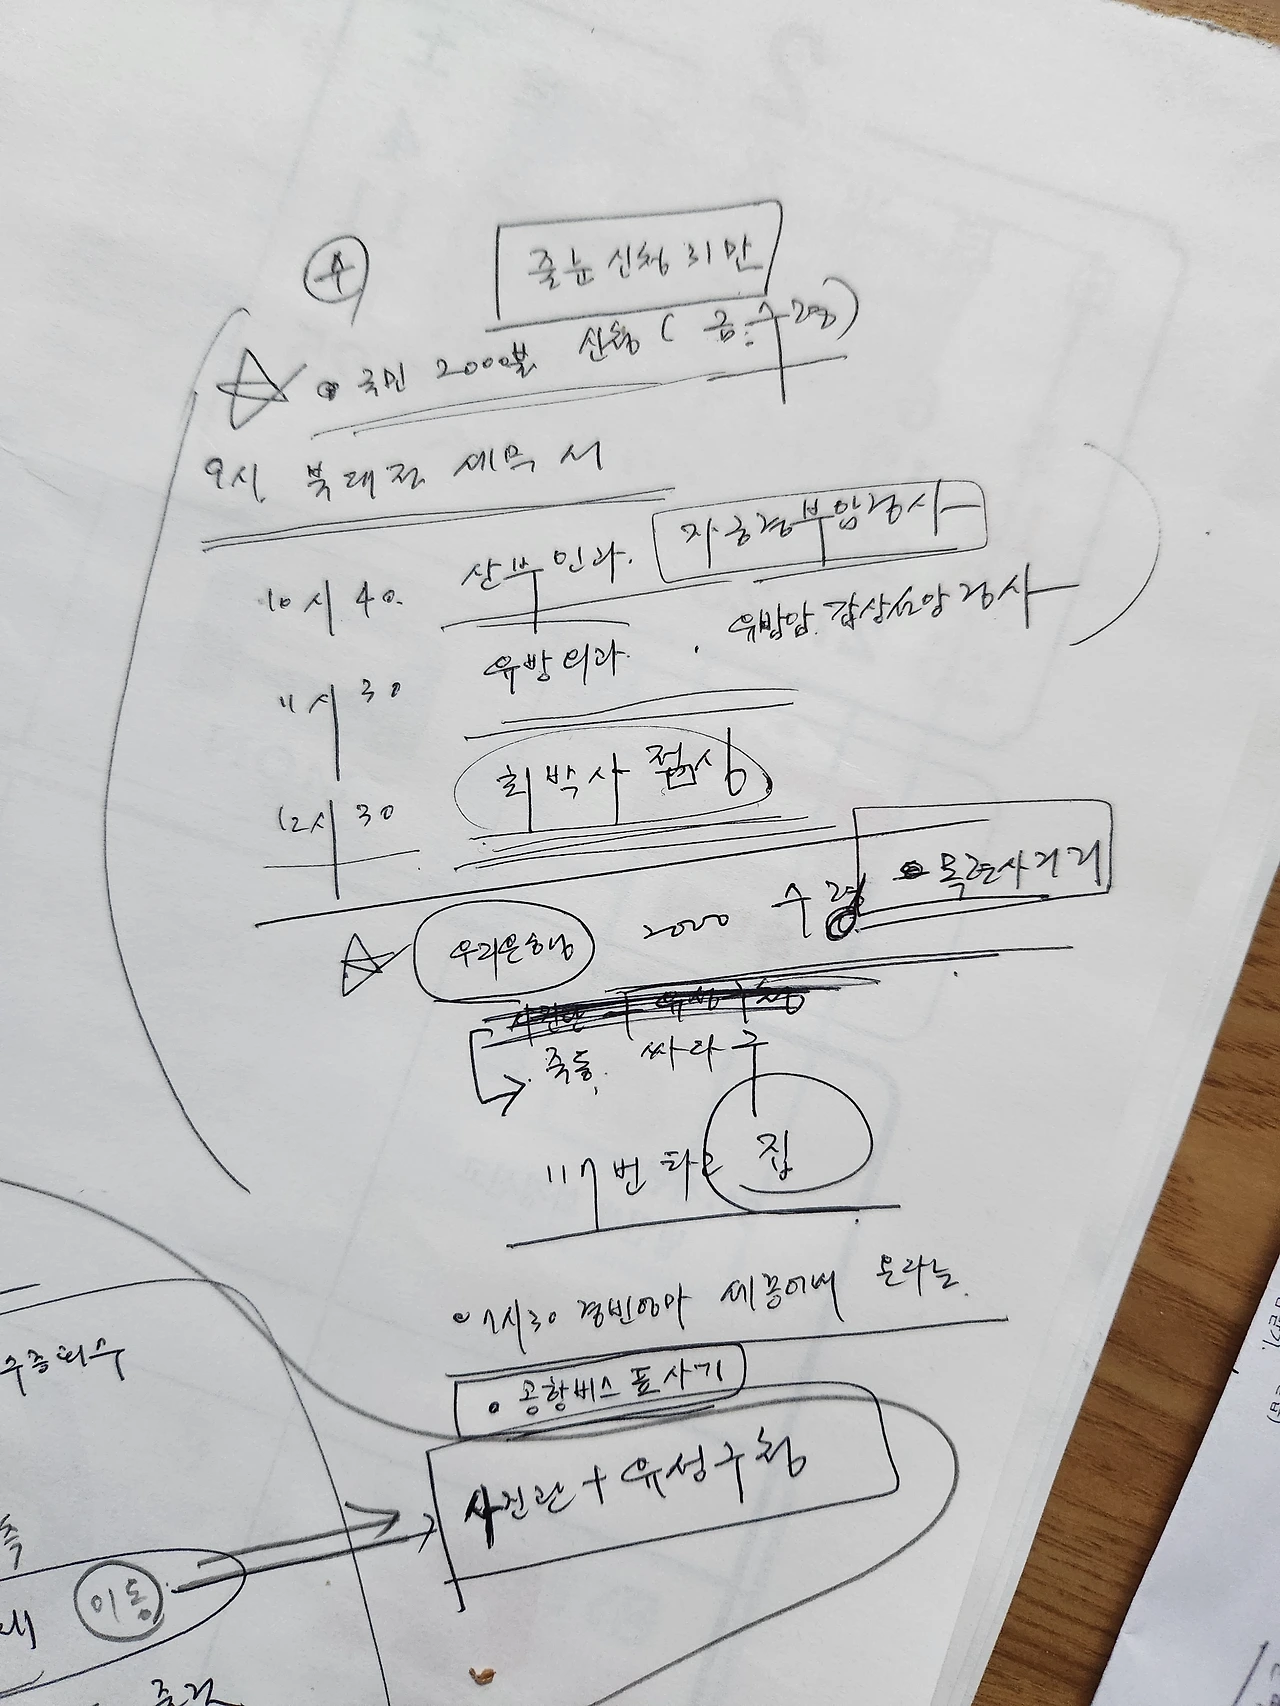 수
줄눈 신청 31만
국민 2000불 신청 ( 금: 수령)
9시 북대전 세무서
10시 40. 산부인과. 자궁경부암검사
11시 30 유방외과. 유방암. 갑상선암 검사
12시 30 최박사 점심
우리은행 2000 수령 목련사거리
사진관 + 유성구청
죽동. 싸리
117번 타고 집
시30 경빈엄마 온라는
공항버스 표사기
사진관 + 유성구청
이동